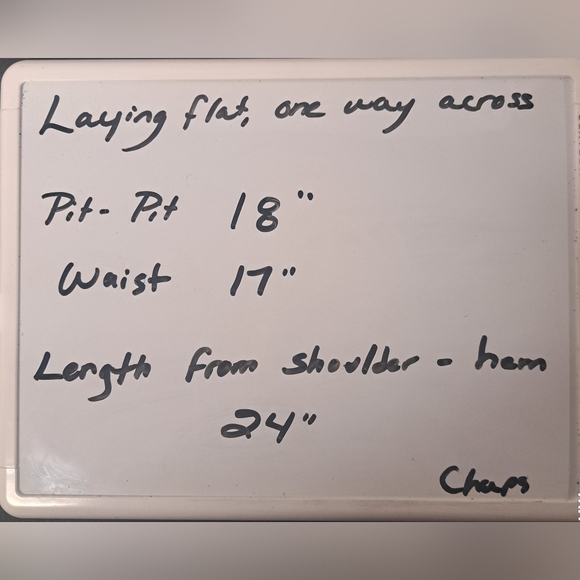 Laying flat, one way across
Pit- Pit 18"
Waist 17"
Length from shoulder - hem
24"
Chaps